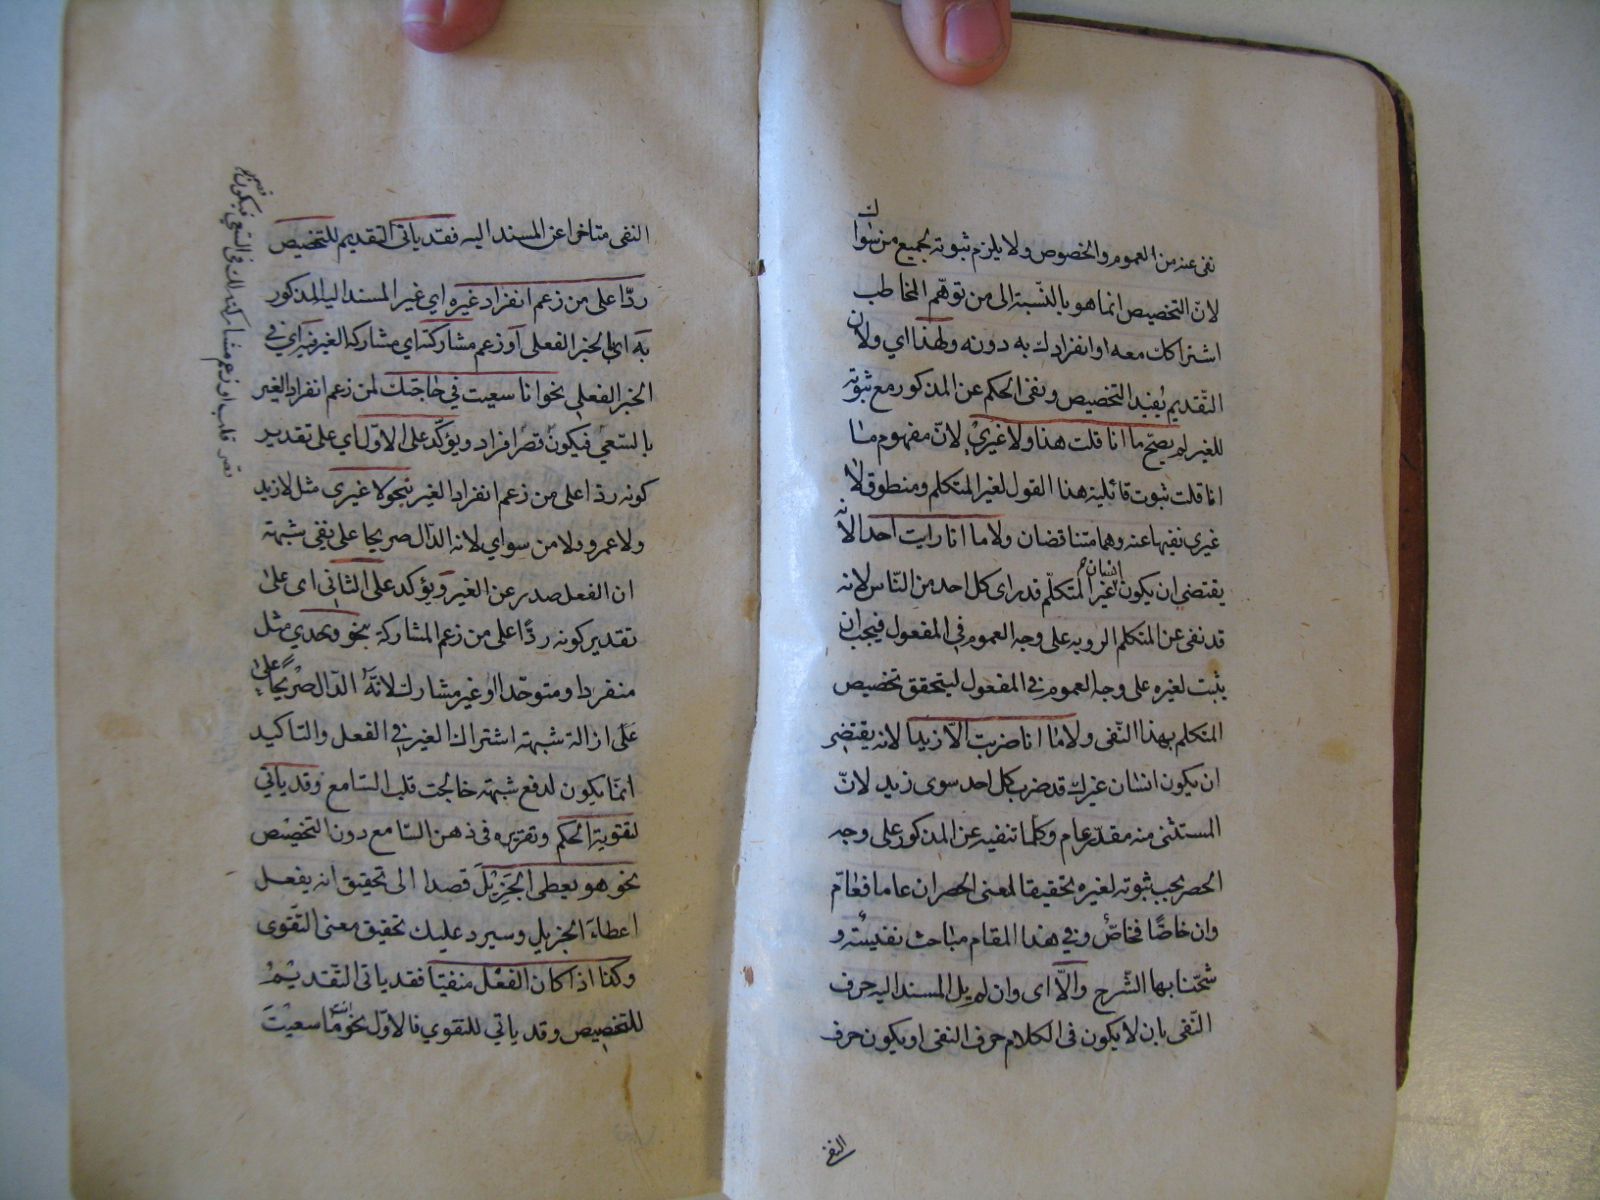 نفى عنه من العموم والخصوص ولا يلزم ثبوته لجميع من سواك
لان التخصيص انما هو بالنسبة الى من توهم المخاطب
اشتراكك معه او انفرادك به دونه ولهذا اى ولان
التقديم يفيد التخصيص ونفى الحكم عن المذكور مع ثبوته
للغير لم يصح ما انا قلت هذا ولا غيرى لان مفهوم ما
انا قلت ثبوت قائلية هذا القول لغير المتكلم ومنطوق لا
غيرى نفيها عنه وهما متناقضان ولا ما انا رايت احدا لانه
يقتضى ان يكون انسان غير المتكلم قد راى كل احد من الناس لانه
قد نفى عن المتكلم الرويه على وجه العموم في المفعول فيجب ان
يثبت لغيره على وجه العموم في المفعول ليتحقق تخصيص
المتكلم بهذا النفى ولا ما انا ضربت الا زيدا لانه يقتضى
ان يكون انسان غيرك قد ضرب كل احد سوى زيد لان
المستثنى منه مقدر عام وكلما تنفيه عن المذكور على وجه
الحصر يجب ثبوته لغيره تحقيقا لمعنى الحصر ان عاما فعام
وان خاصا فخاص وفي هذا المقام مباحث نفيسة و
شحنا بها الشرح والا اى وان لم يل المسند اليه حرف
النفى بان لا يكون فى الكلام حرف النفى او يكون حرف
النفى
النفى متاخرا عن المسند اليه فقد ياتى التقديم للتخصيص
ردا على من زعم انفراد غيره اي غير المسند اليه المذكور
به اى بالخبر الفعلى او زعم مشاركته اي مشاركة الغير فيه اي في
الخبر الفعلى نحو انا سعيت في حاجتك لمن زعم انفراد الغير
بالسعي فيكون قصر افراد ويؤكد على الاول اي على تقدير
كونه ردا على من زعم انفراد الغير بنحو لا غيرى مثل لا زيد
ولا عمرو ولا من سواي لانه الدال صريحا على نفى شبهة
ان الفعل صدر عن الغير ويؤكد على الثانى اى على
تقدير كونه ردا على من زعم المشاركة بنحو وحدي مثل
منفردا ومتوحدا او غير مشارك لانه الدال صريحا على
على ازالة شبهة اشتراك الغير في الفعل والتاكيد
انما يكون لدفع شبهة خالجت قلب السامع وقد ياتي
لتقوية الحكم وتقريره فى ذهن السامع دون التخصيص
نحو هو يعطى الجزيل قصدا الى تحقيق انه يفعل
اعطاء الجزيل وسيرد عليك تحقيق معنى التقوى
وكذا اذا كان الفعل منفيا فقد ياتى التقديم
للتخصيص وقد ياتي للتقوي فالاول نحو انت ما سعيت
قصر قلب او زعم مشاركته لك فى السعي فيكون